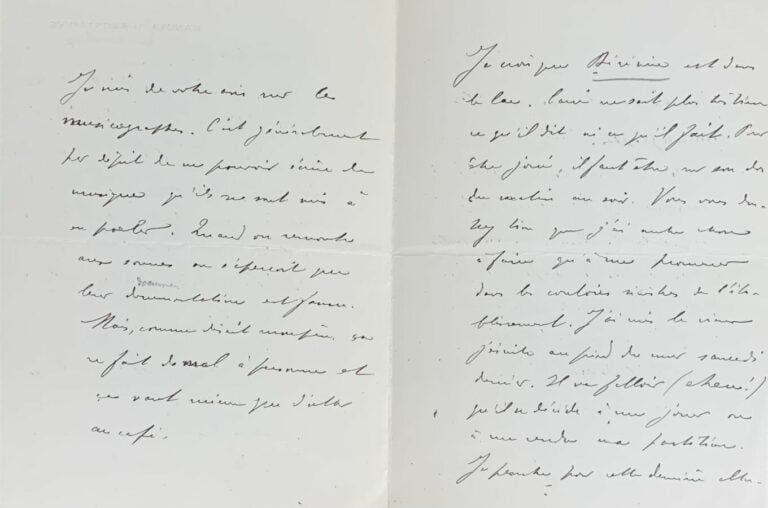 Je suis de votre avis sur les
musicographes. C'est généralement
par dépit de ne pouvoir écrire de
musique qu'ils se sont mis à
en parler. Quand on remonte
aux sources on s'aperçoit que
leur documentation est fausse.
Mais, comme disait mon père, ça
ne fait de mal à personne et
ça vaut mieux que d'aller
au café.
Je crois que Bérénice est dans
le lac. Carré ne sait plus bien
ce qu'il dit ni ce qu'il fait. Pour
être joué, il faut être sur son dos
du matin au soir. Vous vous dou-
tez bien que j'ai autre chose
à faire qu'à me promener
dans les couloirs de l'éta-
blissement. J'ai mis le vieux
jésuite au pied du mur samedi
dernier. Il va falloir
qu'il se décide à me jouer ou
à me rendre ma partition.
Je penche pour cette dernière alter-